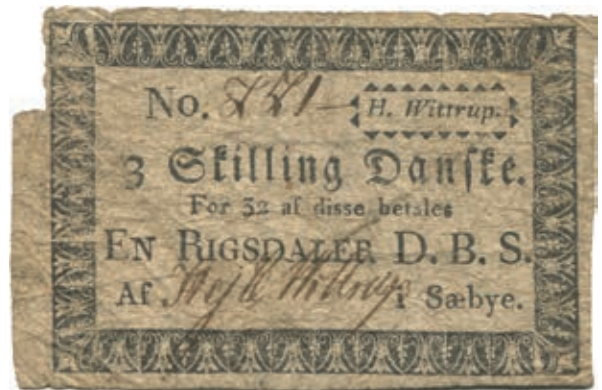 No. 221 H. Wittrup.
3 Skilling Danske.
For 32 af disse betales
EN RIGSDALER D. B. S.
Af Wittrup i Sæbye.